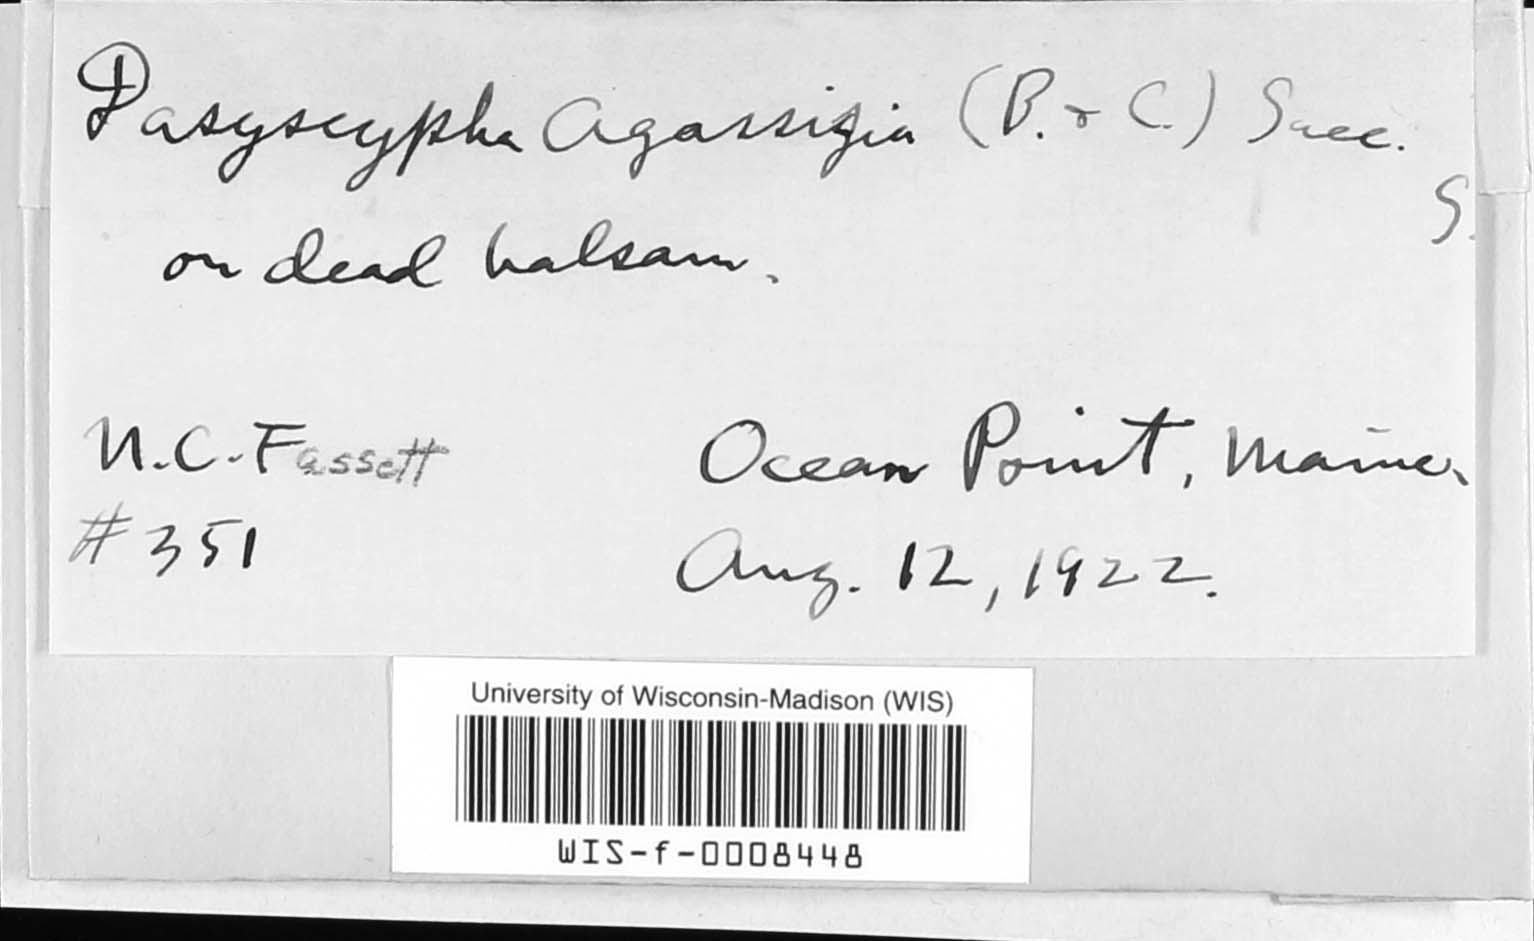 Dasyscypha Agassizia (B. & C.) Sacc.
S.
on dead balsam.
N.C. Fassett
Ocean Point, Maine.
#351
Aug. 12, 1922.
University of Wisconsin-Madison (WIS)
WIS-f-0008448